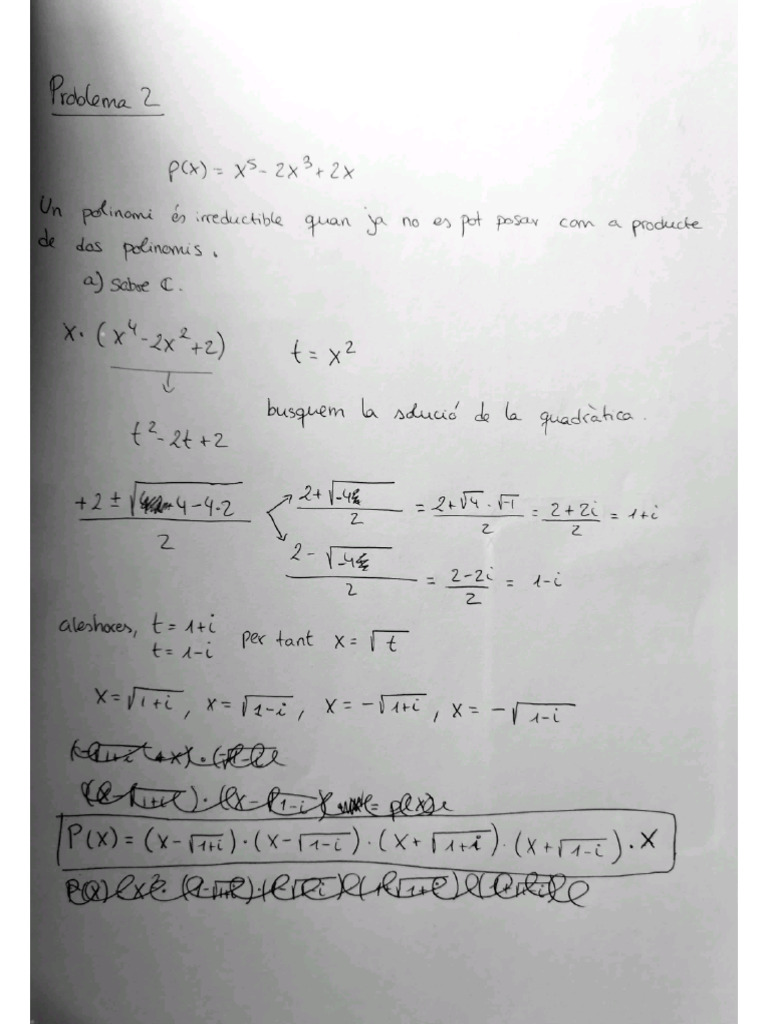 Problema 2
P(x) = x⁵ - 2x³ + 2x
Un polinomi és irreductible quan ja no es pot posar com a producte
de dos polinomis.
a) Sobre ℂ.
x · (x⁴ - 2x² + 2)    t = x²
↓
busquem la solució de la quadràtica.
t² - 2t + 2
(+2 ± √(4 - 4·2))/2    (2 + √(-4))/2 = (2 + √4 · √-1)/2 = (2 + 2i)/2 = 1+i
(2 - √(-4))/2 = (2 - 2i)/2 = 1-i
aleshores, t = 1+i
t = 1-i    per tant x = √t
x = √(1+i), x = √(1-i), x = -√(1+i), x = -√(1-i)
P(x) = (x - √(1+i)) · (x - √(1-i)) · (x + √(1+i)) · (x + √(1-i)) · x